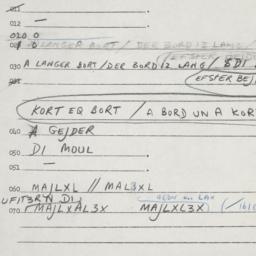 011
012 —
020 0
A LANGER BORT / DER BORD IZ LANG /
030 A LANGER BORT / DER BORD IZ LANG / S DI
(EFSTER BEJ
KORT EQ BORT / A BORD UN A KOR
040 A GEJDER
050 DI MOUL
051 —
060 MAJLXL // MAL3XL
UFIT3RN DI
070 MAJLXAL3X MAJLXL3X (/161